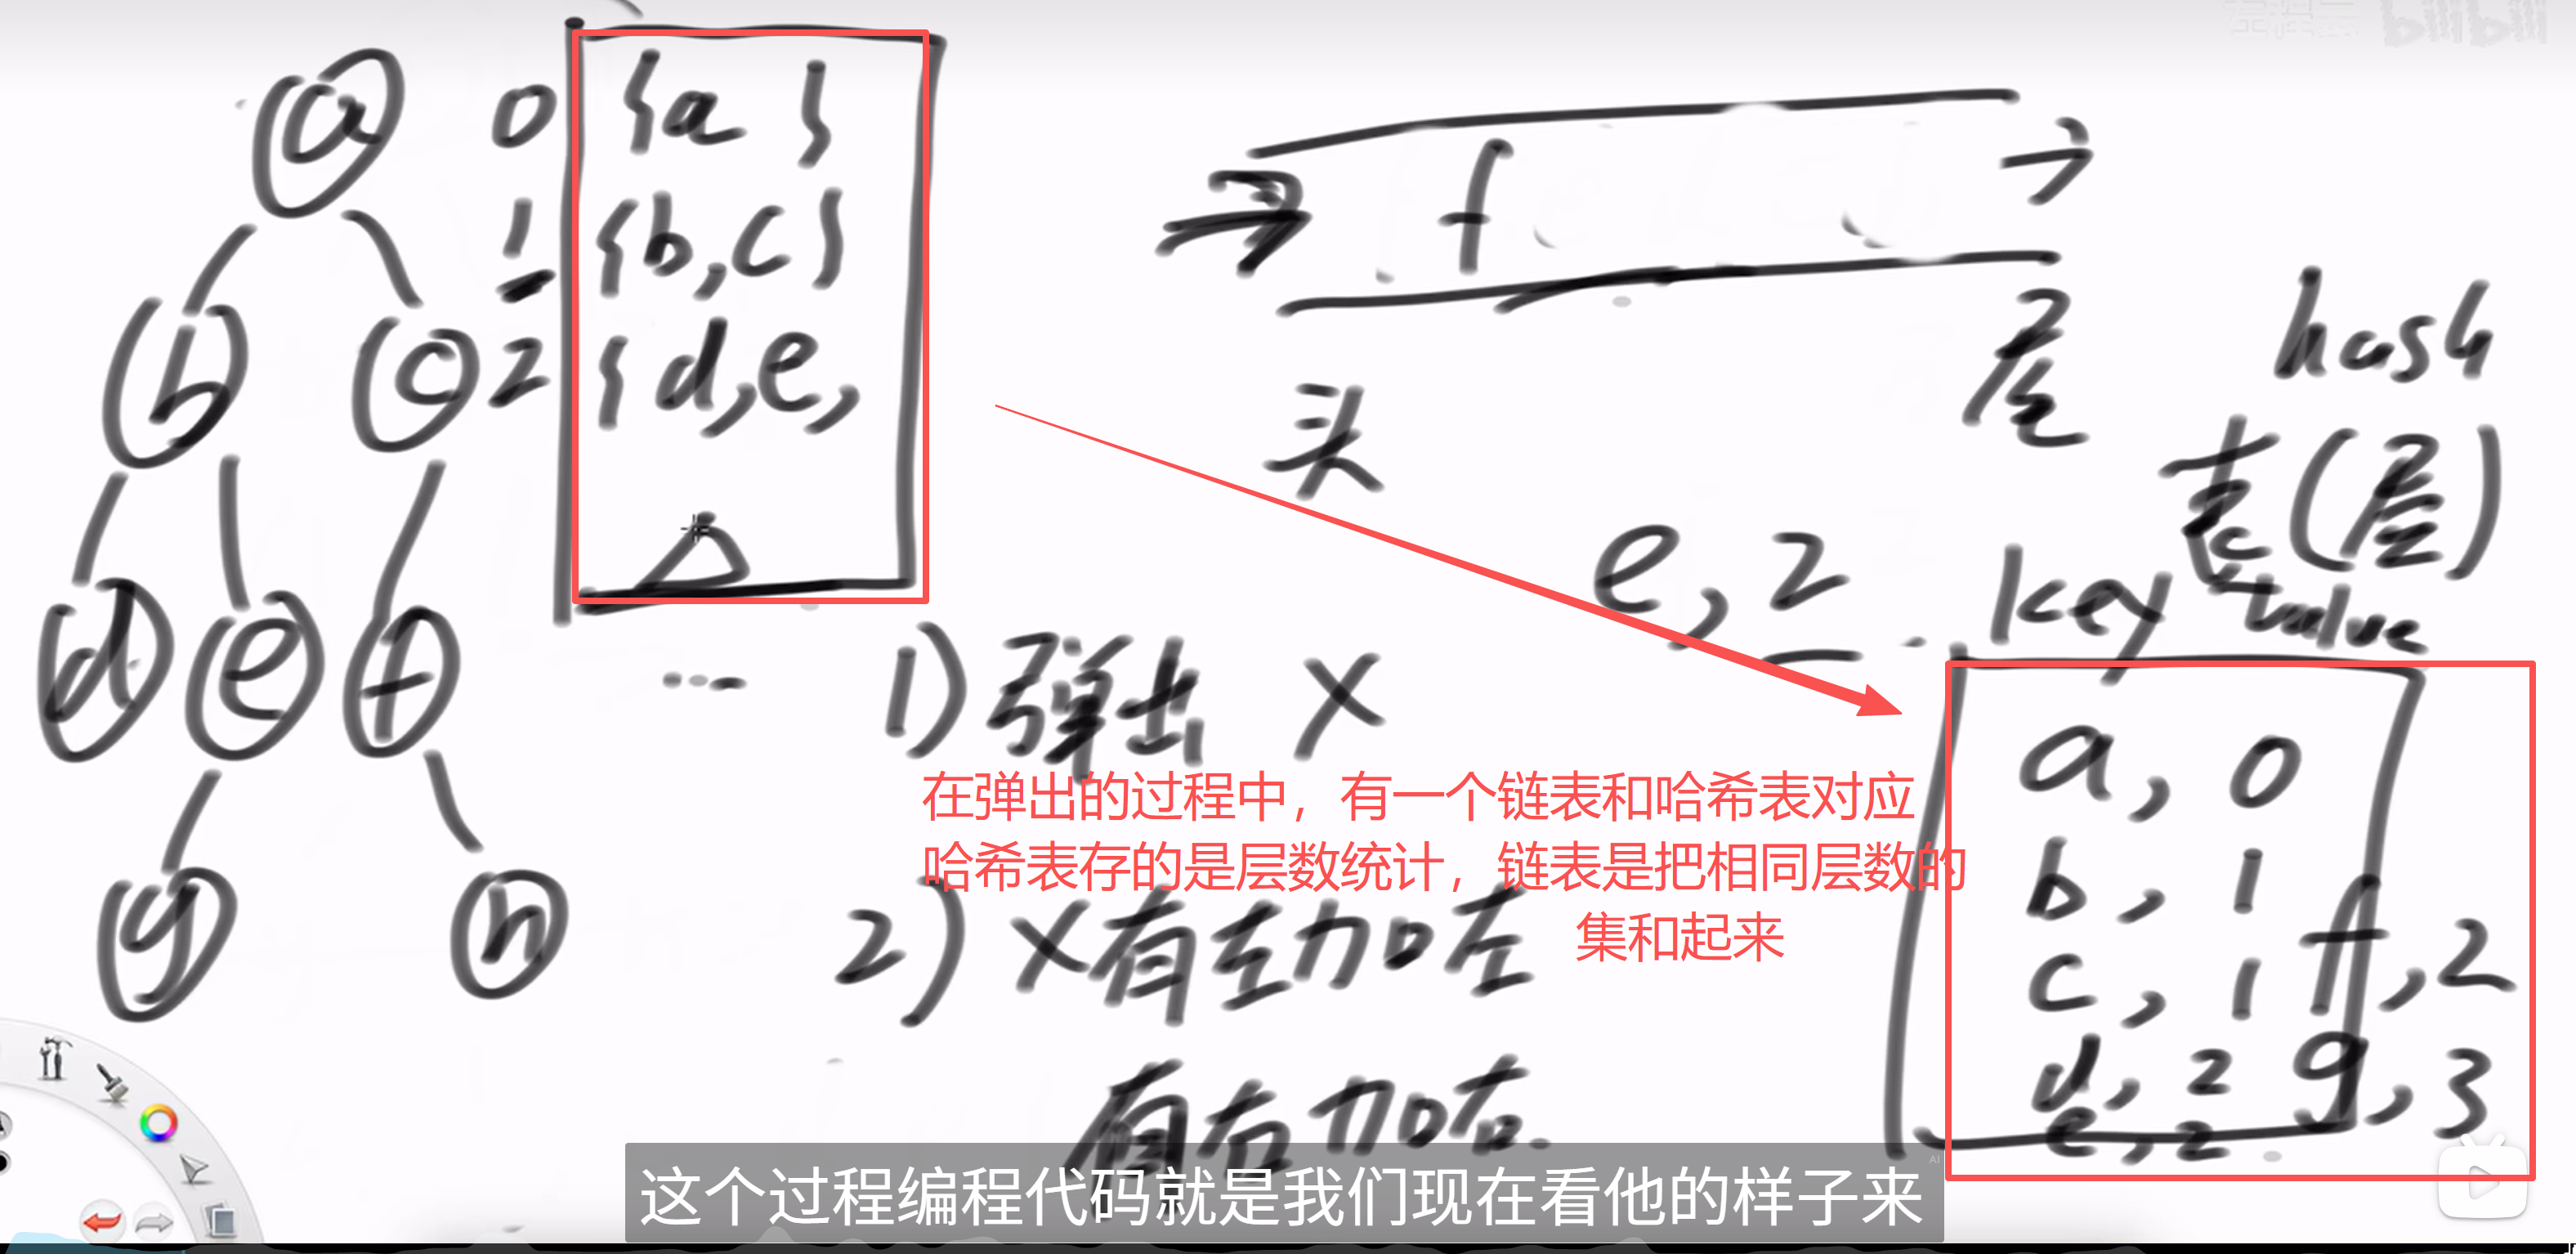 bilibili
a
0 {a }
1 {b,c}
b c 2 {d,e,
f
头
尾
hash
表(层)
e,2
key value
d e f
1)弹出 X
a, 0
在弹出的过程中，有一个链表和哈希表对应
哈希表存的是层数统计，链表是把相同层数的
集和起来
b, 1
g h
2) X有左加左
c, 1 f,2
有右加右
d, 2 g,3
e, 2
AI
这个过程编程代码就是我们现在看他的样子来